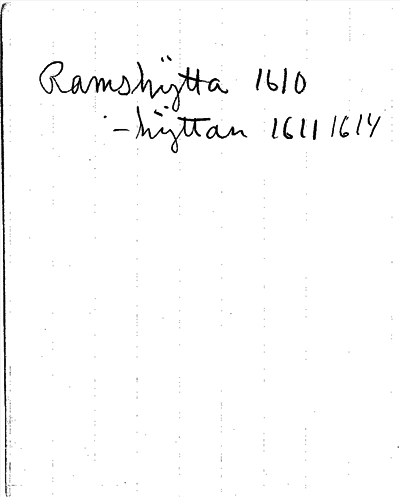 Ramshÿtta 1610
–hÿttan 1611 1614